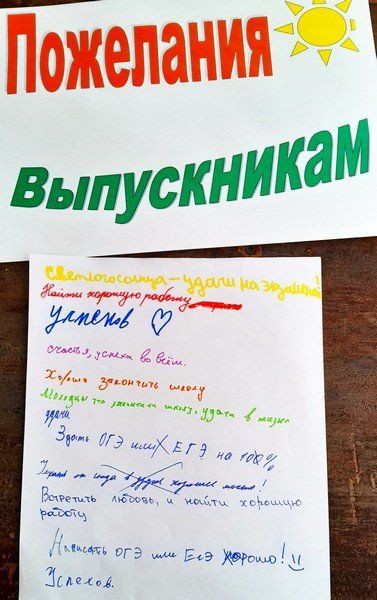 Пожелания
Выпускникам
Светлого солнца - удачи на экзамене!
Найти хорошую работу
Успехов
счастья, успеха во всём.
Хорошо закончить школу
Молодцы что закончили школу, удачи в жизни
удачи
Здать ОГЭ или ЕГЭ на 100%
Уехать от сюда в хорошее место!
Встретить любовь, и найти хорошую
работу
Написать ОГЭ или ЕГЭ хорошо!
Успехов.